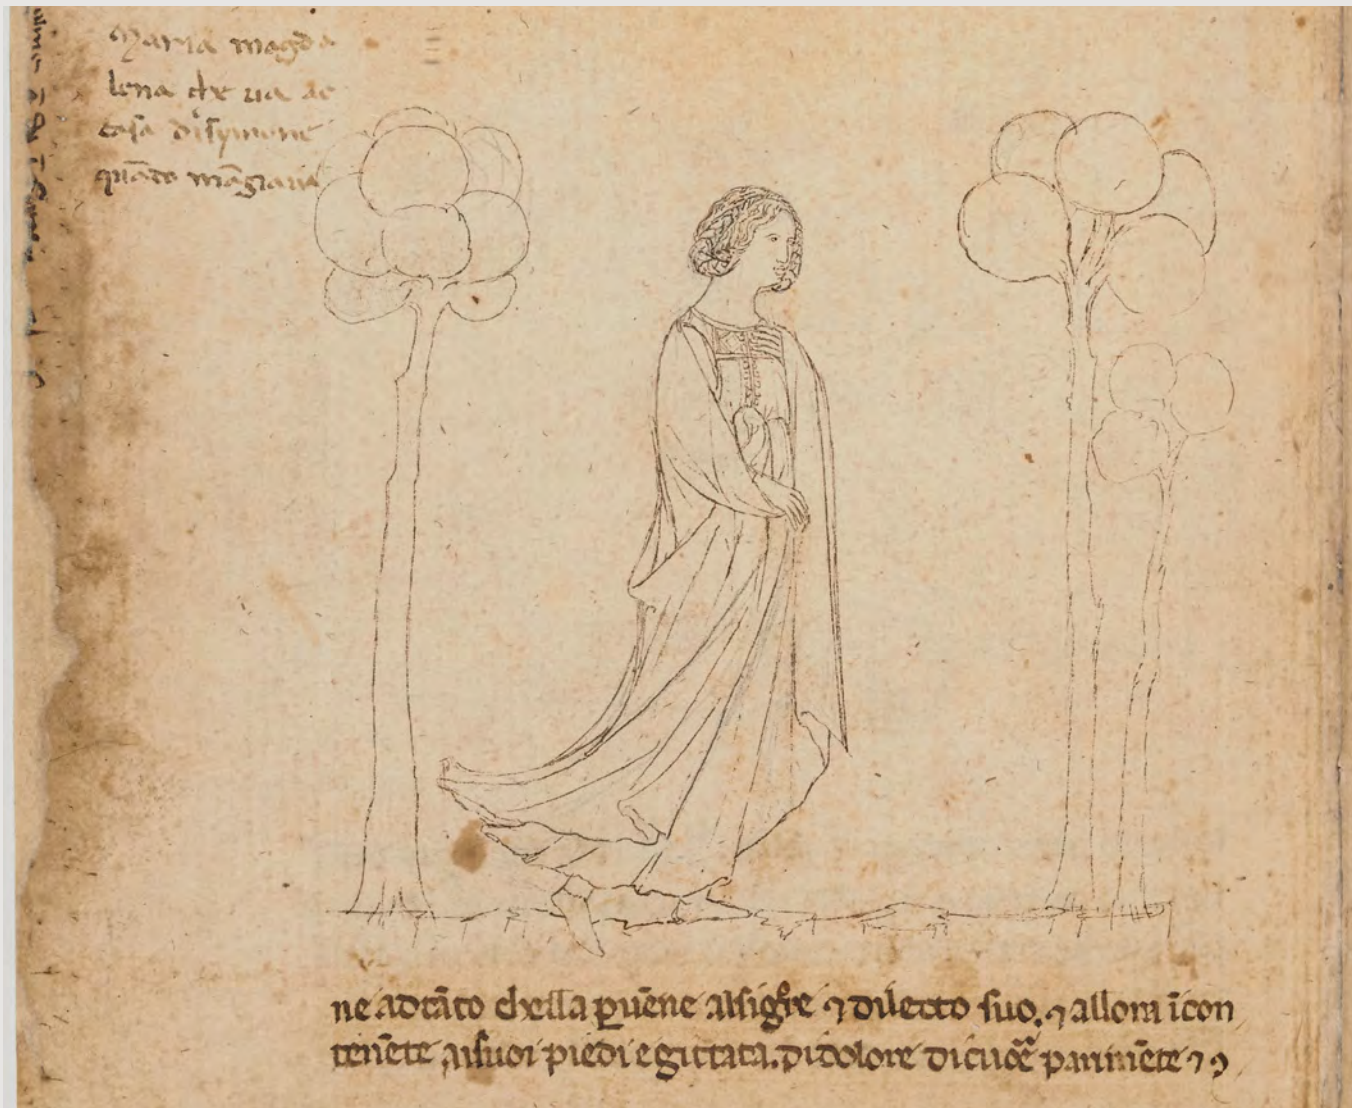 Maria magda
lena che ua ac
casa di symone
quādo māgiaua
ne adtāto chella puēne alsigre ⁊ diletto suo. ⁊ allora īcon
tenēte aisuoi piedi e gittata. di dolore di cuore parimēte ⁊ ɔ